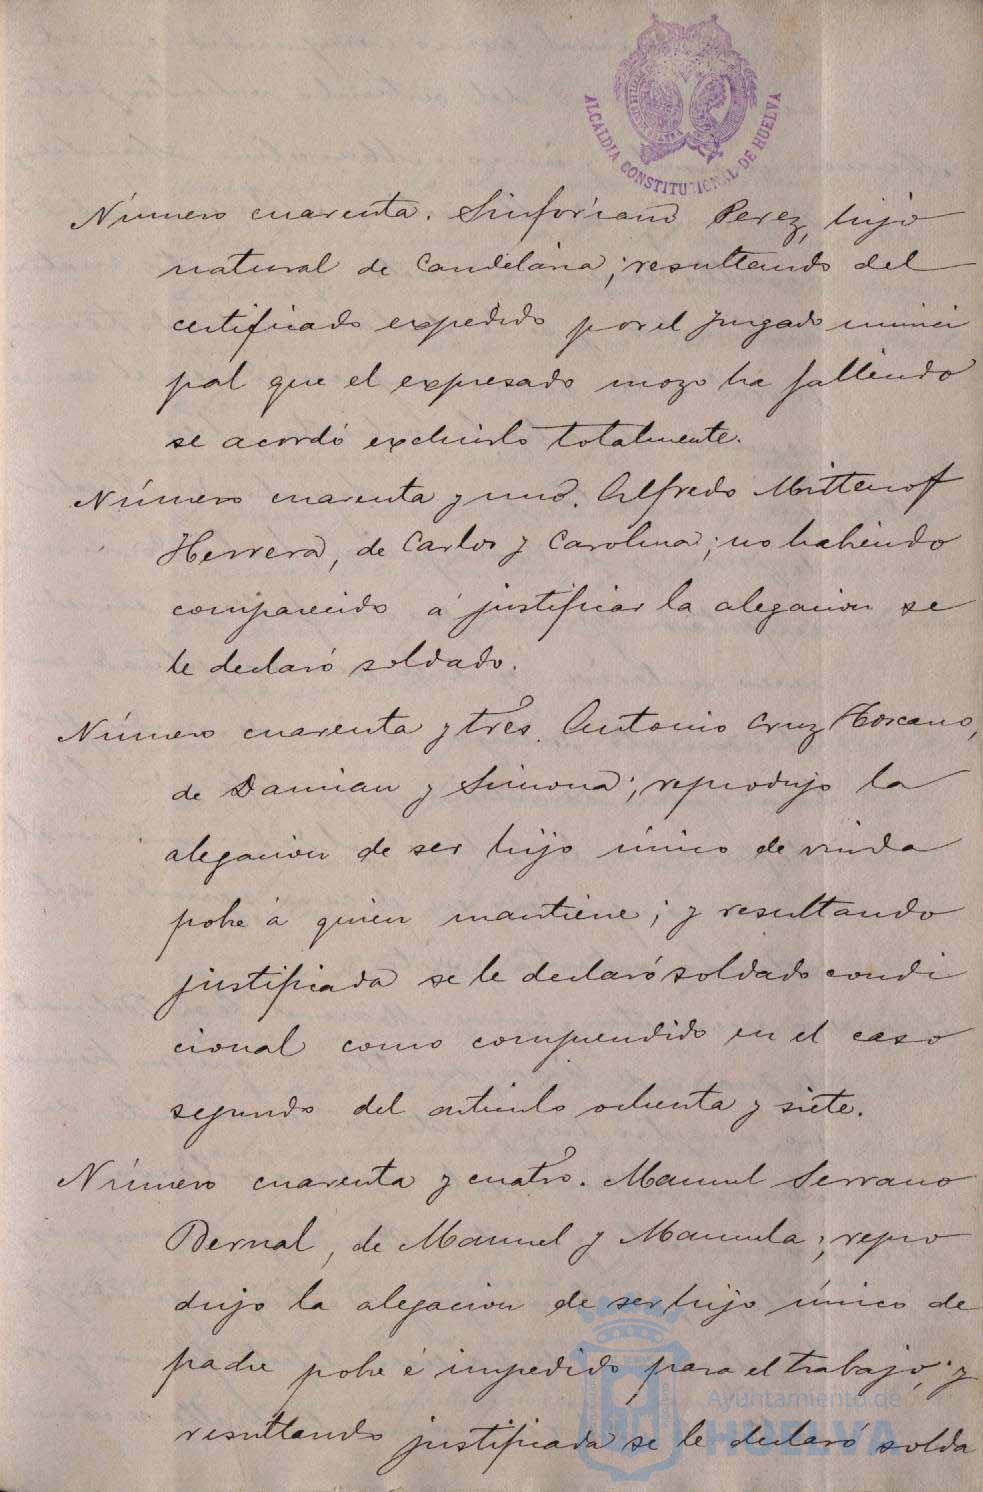 ALCALDIA CONSTITUCIONAL DE HUELVA
Número cuarenta. Sinforiano Perez, hijo
natural de Candelaria; resultando del
certificado expedido por el Juzgado munici
pal que el expresado mozo ha fallecido
se acordó excluirlo totalmente.
Número cuarenta y uno. Alfredo Mittenof
Herrera, de Carlos y Carolina; no habiendo
comparecido á justificar la alegacion se
le declaró soldado.
Número cuarenta y tres. Antonio Cruz Toscano,
de Damian y Simona; reprodujo la
alegacion de ser hijo único de viuda
pobre á quien mantiene; y resultando
justificada se le declaró soldado condi
cional como comprendido en el caso
segundo del articulo ochenta y siete.
Número cuarenta y cuatro. Manuel Serrano
Bernal, de Manuel y Manuela; repro
dujo la alegacion de ser hijo único de
padre pobre é impedido para el trabajo; y
resultando justificada se le declaró solda
Ayuntamiento de
HUELVA